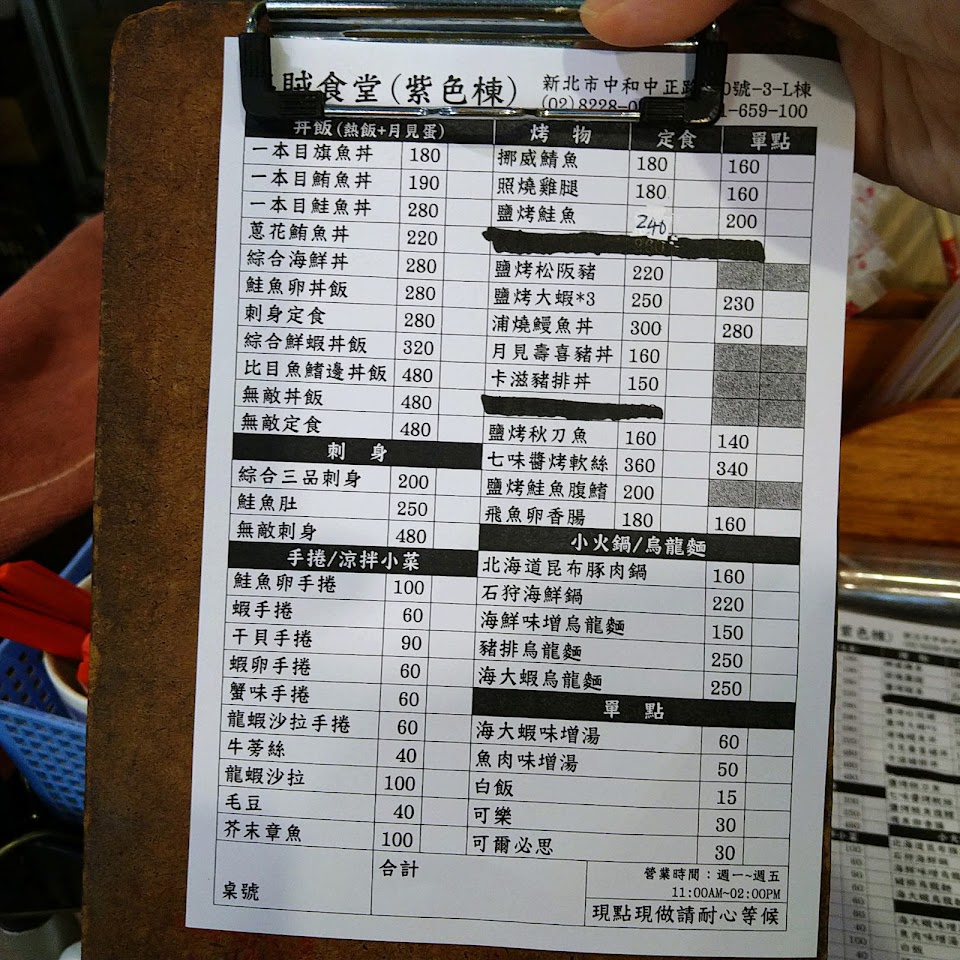 賊食堂(紫色棟)
新北市中和中正路 0號-3-L棟
(02)8228-0 1-659-100
丼飯(熱飯+月見蛋)
一本目旗魚丼 180
一本目鮪魚丼 190
一本目鮭魚丼 280
蔥花鮪魚丼 220
綜合海鮮丼 280
鮭魚卵丼飯 280
刺身定食 280
綜合鮮蝦丼飯 320
比目魚鰭邊丼飯 480
無敵丼飯 480
無敵定食 480
刺 身
綜合三品刺身 200
鮭魚肚 250
無敵刺身 480
手捲/涼拌小菜
鮭魚卵手捲 100
蝦手捲 60
干貝手捲 90
蝦卵手捲 60
蟹味手捲 60
龍蝦沙拉手捲 60
牛蒡絲 40
龍蝦沙拉 100
毛豆 40
芥末章魚 100
烤 物 定食 單點
挪威鯖魚 180 160
照燒雞腿 180 160
鹽烤鮭魚 240 200
鹽烤松阪豬 220
鹽烤大蝦*3 250 230
浦燒鰻魚丼 300 280
月見壽喜豬丼 160
卡滋豬排丼 150
鹽烤秋刀魚 160 140
七味醬烤軟絲 360 340
鹽烤鮭魚腹鰭 200
飛魚卵香腸 180 160
小火鍋/烏龍麵
北海道昆布豚肉鍋 160
石狩海鮮鍋 220
海鮮味增烏龍麵 150
豬排烏龍麵 250
海大蝦烏龍麵 250
單 點
海大蝦味增湯 60
魚肉味增湯 50
白飯 15
可樂 30
可爾必思 30
桌號
合計
營業時間：週一~週五
11:00AM~02:00PM
現點現做請耐心等候